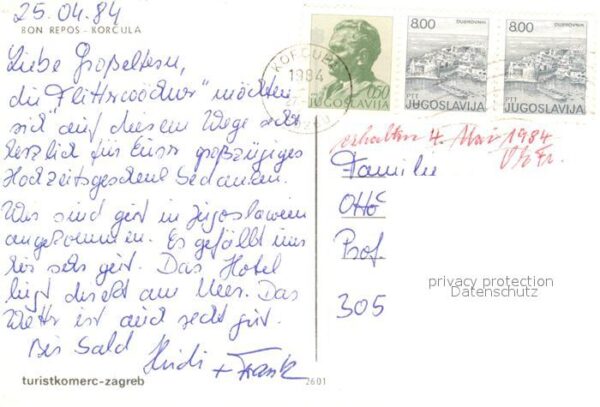 25.04.84
BON REPOS - KORČULA
Liebe Großeltern,
die "Flitterwöchner" möchten
sich auf diesem Wege sehr
herzlich für Euer großzügiges
Hochzeitsgeschenk bedanken.
Wir sind gut in Jugoslawien
angekommen. Es gefällt uns
hier sehr gut. Das Hotel
liegt direkt am Meer. Das
Wetter ist auch recht gut.
Bis bald Heidi
+ Frank
turistkomerc-zagreb
2601
KORČULA
1984
0.60
JUGOSLAVIJA
8.00
DUBROVNIK
PTT
JUGOSLAVIJA
8.00
DUBROVNIK
PTT
JUGOSLAVIJA
erhalten 4. Mai 1984
Familie
Otto
Prof.
305
privacy protection
Datenschutz